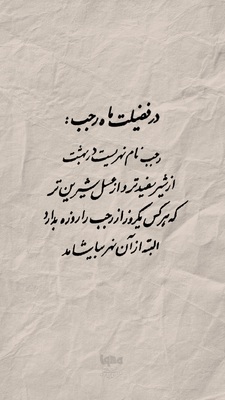 در فضیلت ماه رجب :
رجب نام نهریست در بهشت
از شیر سفیدتر و از عسل شیرین تر
که هر کس یکروز از رجب را روزه بدارد
البته از آن نهر بیاشامد